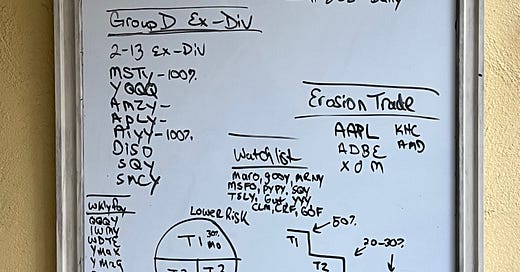 Daily
Group D Ex-Div
2-13 Ex-Div
MSTY-100%
YQQQ
AMZY-
APLY-
AIYY-100%
DISO
SQY
SMCY
Erosion Trade
AAPL KHC
ADBE AMD
XOM
Watchlist
MARO, GOOY, MRNY
MSFO, PYPY, SQY
TSLY, YYY
CLM, CRF, GOF
WklyPay
QQQY
IWMY
WDTE
YMAX
YMAG
Lower Risk
T1 30% MO
T1
50%
T2
20-30%
T2 T3